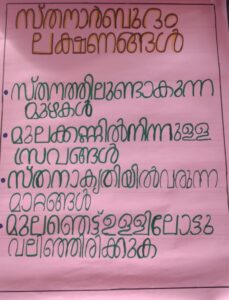 സ്തനാർബുദം
ലക്ഷണങ്ങൾ
• സ്തനത്തിലുണ്ടാകുന്ന
മുഴകൾ
• മുലക്കണ്ണിൽനിന്നുള്ള
സ്രവങ്ങൾ
• സ്തനാകൃതിയിൽവരുന്ന
മാറ്റങ്ങൾ
• മുലഞെട്ട് ഉള്ളിലോട്ടു
വലിഞ്ഞിരിക്കുക